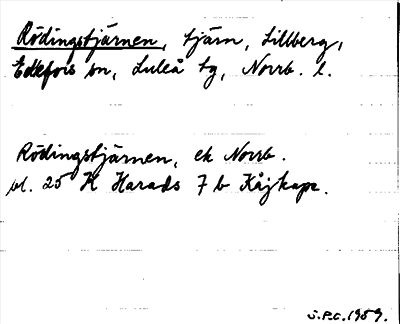 Rödingstjärnen, tjärn, Lillberg,
Edefors sn, Luleå tg, Norrb. l.
Rödingstjärnen, ek Norrb.
bl. 25 K Harads 7 b Kåjkape.
S.P.C. 1959.